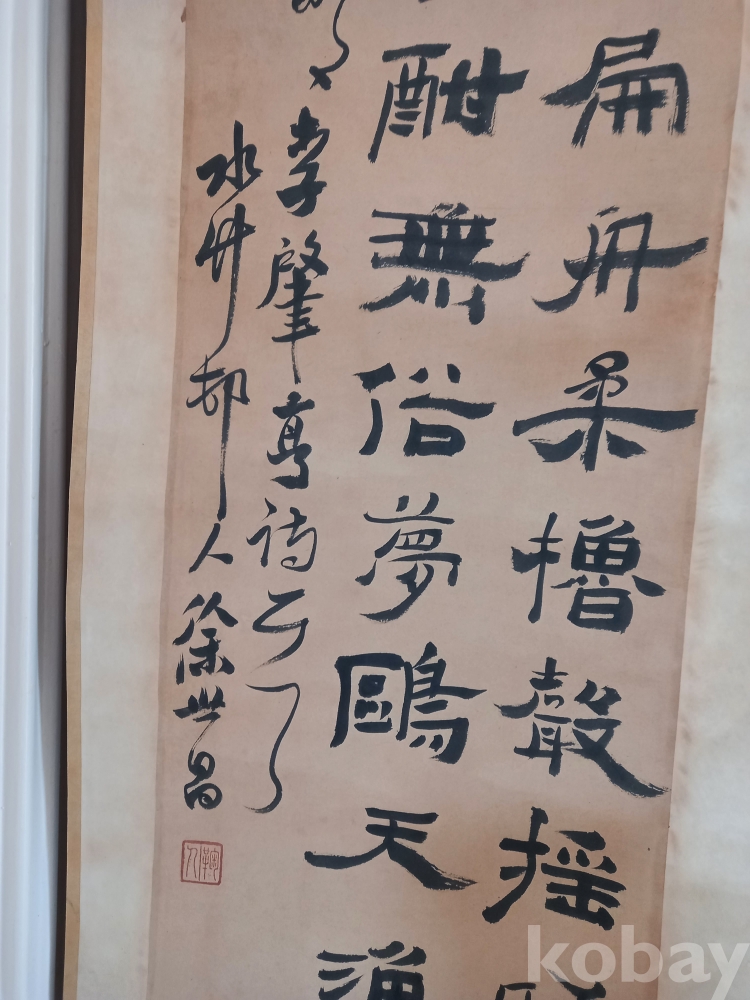 扁舟柔櫓聲搖
酣無俗夢鷗天
李肇亨詩
水竹邨人徐世昌
鞠人
kobay